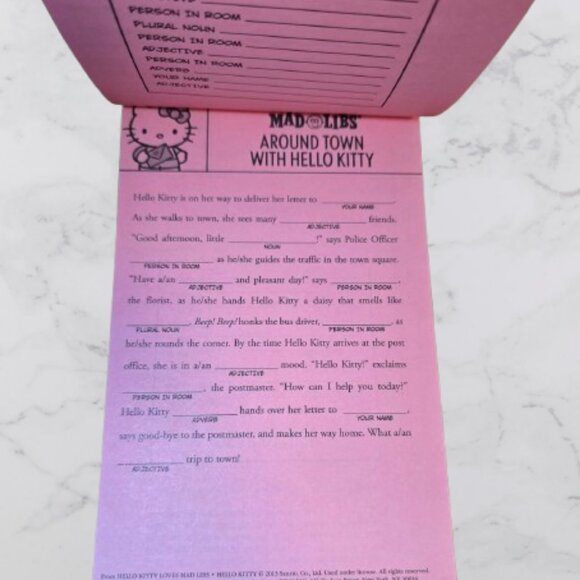 PERSON IN ROOM
PLURAL NOUN
PERSON IN ROOM
ADJECTIVE
PERSON IN ROOM
ADVERB
YOUR NAME
ADJECTIVE
MAD LIBS
AROUND TOWN
WITH HELLO KITTY
Hello Kitty is on her way to deliver her letter to ____________.
YOUR NAME
As she walks to town, she sees many ____________ friends.
ADJECTIVE
"Good afternoon, little ____________!" says Police Officer
NOUN
____________ as he/she guides the traffic in the town square.
PERSON IN ROOM
"Have a/an ____________ and pleasant day!" says ____________,
ADJECTIVE PERSON IN ROOM
the florist, as he/she hands Hello Kitty a daisy that smells like
____________. Beep! Beep! honks the bus driver, ____________, as
PLURAL NOUN PERSON IN ROOM
he/she rounds the corner. By the time Hello Kitty arrives at the post
office, she is in a/an ____________ mood. "Hello Kitty!" exclaims
ADJECTIVE
____________, the postmaster. "How can I help you today?"
PERSON IN ROOM
Hello Kitty ____________ hands over her letter to ____________,
ADVERB YOUR NAME
says good-bye to the postmaster, and makes her way home. What a/an
____________ trip to town!
ADJECTIVE
From HELLO KITTY LOVES MAD LIBS • HELLO KITTY © 2013 Sanrio Co., Ltd. Used under license. All rights reserved.